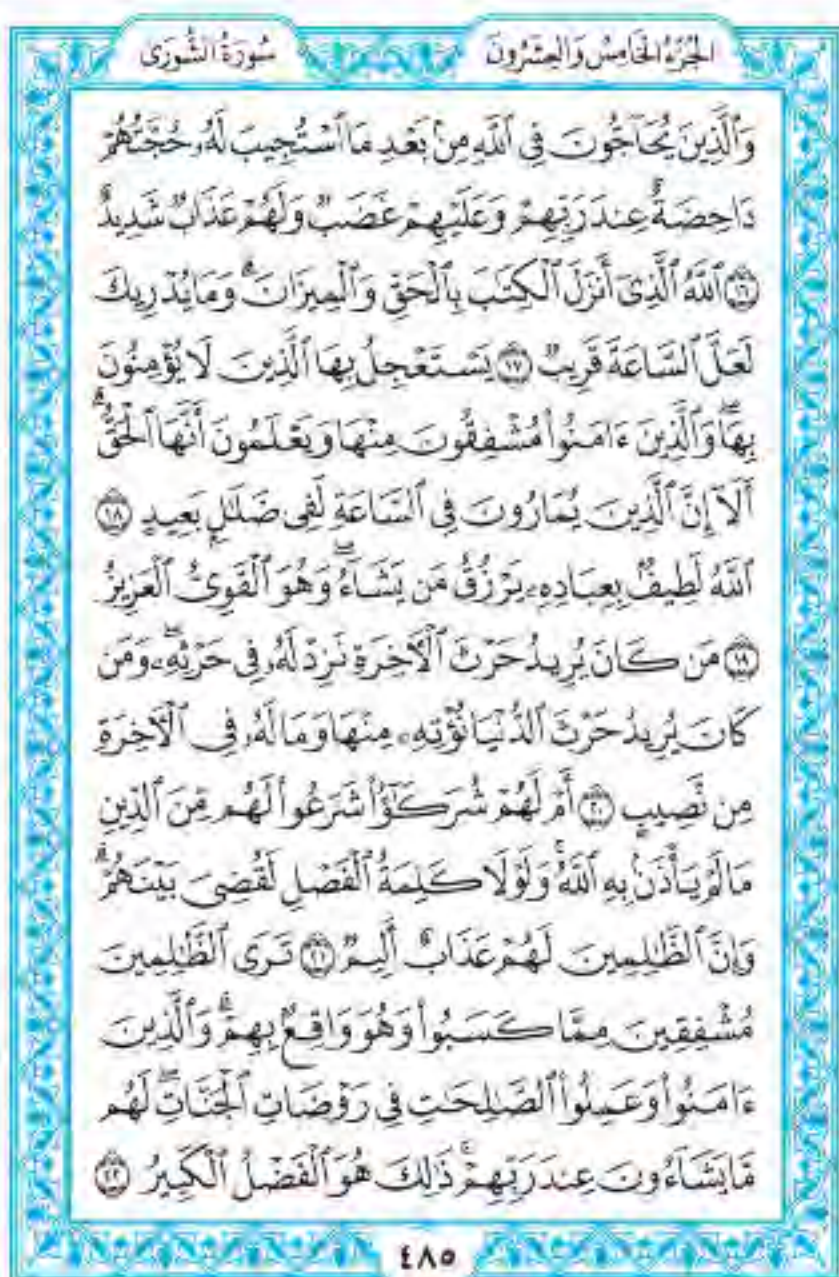 الجُزْءُ الخَامِسُ وَالعِشْرُونَ
سُورَةُ الشُّورَى
وَٱلَّذِينَ يُحَآجُّونَ فِي ٱللَّهِ مِنۢ بَعْدِ مَا ٱسْتُجِيبَ لَهُۥ حُجَّتُهُمْ
دَاحِضَةٌ عِندَ رَبِّهِمْ وَعَلَيْهِمْ غَضَبٌ وَلَهُمْ عَذَابٌ شَدِيدٌ
١٦ ٱللَّهُ ٱلَّذِىٓ أَنزَلَ ٱلْكِتَٰبَ بِٱلْحَقِّ وَٱلْمِيزَانَ ۗ وَمَا يُدْرِيكَ
لَعَلَّ ٱلسَّاعَةَ قَرِيبٌ ١٧ يَسْتَعْجِلُ بِهَا ٱلَّذِينَ لَا يُؤْمِنُونَ
بِهَا ۖ وَٱلَّذِينَ ءَامَنُوا۟ مُشْفِقُونَ مِنْهَا وَيَعْلَمُونَ أَنَّهَا ٱلْحَقُّ ۗ
أَلَآ إِنَّ ٱلَّذِينَ يُمَارُونَ فِى ٱلسَّاعَةِ لَفِى ضَلَٰلٍۭ بَعِيدٍ ١٨
ٱللَّهُ لَطِيفٌۢ بِعِبَادِهِۦ يَرْزُقُ مَن يَشَآءُ ۖ وَهُوَ ٱلْقَوِىُّ ٱلْعَزِيزُ
١٩ مَن كَانَ يُرِيدُ حَرْثَ ٱلْأَخِرَةِ نَزِدْ لَهُۥ فِى حَرْثِهِۦ ۖ وَمَن
كَانَ يُرِيدُ حَرْثَ ٱلدُّنْيَا نُؤْتِهِۦ مِنْهَا وَمَا لَهُۥ فِى ٱلْأَخِرَةِ
مِن نَّصِيبٍ ٢٠ أَمْ لَهُمْ شُرَكَٰٓؤُا۟ شَرَعُوا۟ لَهُم مِّنَ ٱلدِّينِ
مَا لَمْ يَأْذَنۢ بِهِ ٱللَّهُ ۚ وَلَوْلَا كَلِمَةُ ٱلْفَصْلِ لَقُضِىَ بَيْنَهُمْ ۗ
وَإِنَّ ٱلظَّٰلِمِينَ لَهُمْ عَذَابٌ أَلِيمٌ ٢١ تَرَى ٱلظَّٰلِمِينَ
مُشْفِقِينَ مِمَّا كَسَبُوا۟ وَهُوَ وَاقِعٌۢ بِهِمْ ۗ وَٱلَّذِينَ
ءَامَنُوا۟ وَعَمِلُوا۟ ٱلصَّٰلِحَٰتِ فِى رَوْضَاتِ ٱلْجَنَّاتِ ۖ لَهُم
مَّا يَشَآءُونَ عِندَ رَبِّهِمْ ۚ ذَٰلِكَ هُوَ ٱلْفَضْلُ ٱلْكَبِيرُ ٢٢
٤٨٥